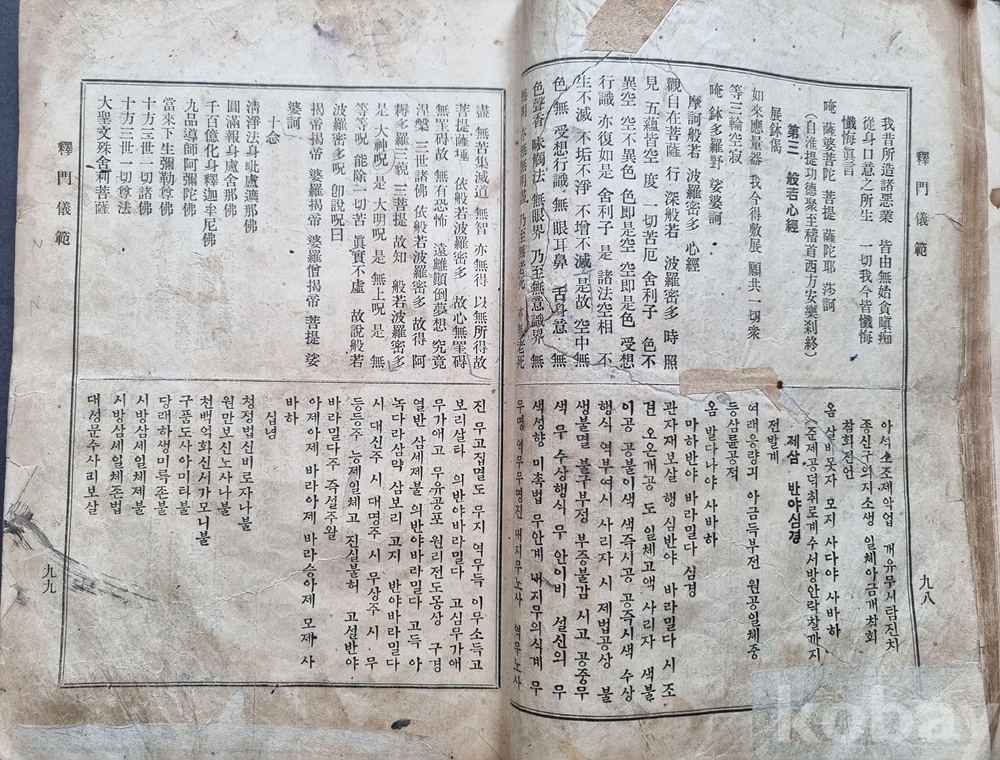 釋門儀範
我昔所造諸惡業 皆由無始貪瞋痴
從身口意之所生 一切我今皆懺悔
懺悔眞言
唵 薩婆菩陀 菩提 薩陀耶 莎訶
(自准提功德聚至稽首西方安樂刹終)
第三 般若心經
展鉢偈
如來應量器 我今得敷展 願共一切衆
等三輪空寂
唵 鉢多羅野 娑婆訶
摩訶般若 波羅密多 心經
觀自在菩薩 行 深般若 波羅密多 時 照
見 五蘊皆空 度 一切苦厄 舍利子 色不
異空 空不異色 色即是空 空即是色 受想
行識 亦復如是 舍利子 是 諸法空相 不
生不滅 不垢不淨 不增不滅 是故 空中無
色 無 受想行識 無 眼耳鼻 舌身意 無
色聲香 味觸法 無眼界 乃至無意識界 無
無明 亦 無無明盡 乃至無老死 亦無老死
九八
아석소조제악업 개유무시탐진치
종신구의지소생 일체아금개참회
참회진언
옴 살바못자 모지 사다야 사바하
(준제공덕취로게수서방안락찰까지)
제삼 반야심경
전발게
여래응량긔 아금득부전 원공일체중
등삼륜공적
옴 발다나야 사바하
마하반야 바라밀다 심경
관자재보살 행 심반야 바라밀다 시 조
견 오온개공 도 일체고액 사리자 색불
이공 공불이색 색즉시공 공즉시색 수상
행식 역부여시 사리자 시 제법공상 불
생불멸 불구부정 부증불감 시고 공중무
색 무 수상행식 무 안이비 설신의 무
색성향 미촉법 무안계 내지무의식계 무
무명 역무무명진 내지무노사 역무노사
盡 無苦集滅道 無智 亦無得 以無所得故
菩提薩埵 依般若波羅密多 故心無罣碍
無罣碍故 無有恐怖 遠離顚倒夢想 究竟
涅槃 三世諸佛 依般若波羅密多 故得 阿
耨多羅 三藐 三菩提 故知 般若波羅密多
是大神呪 是 大明呪 是 無上呪 是 無
等等呪 能除一切苦 眞實不虛 故說般若
波羅密多呪 卽說呪曰
揭帝揭帝 婆羅揭帝 婆羅僧揭帝 菩提 娑
婆訶
十念
淸淨法身毗盧遮那佛
圓滿報身盧舍那佛
千百億化身釋迦牟尼佛
九品導師阿彌陀佛
當來下生彌勒尊佛
十方三世一切諸佛
十方三世一切尊法
大聖文殊舍利菩薩
釋門儀範
진 무고집멸도 무지 역무득 이무소득고
보리살타 의반야바라밀다 고심무가애
무가애고 무유공포 원리전도몽상 구경
열반 삼세제불 의반야바라밀다 고득 아
녹다라삼먁 삼보리 고지 반야바라밀다
시 대신주 시 대명주 시 무상주 시 무
등등주 능제일체고 진실불허 고설반야
바라밀다주 즉설주왈
아제아제 바라아제 바라승아제 모제 사
바하
십념
청정법신비로자나불
원만보신노사나불
천백억화신서가모니불
구품도사아미타불
당래하생미륵존불
시방삼세일체제불
시방삼세일체존법
대성문수사리보살
九九
kobay